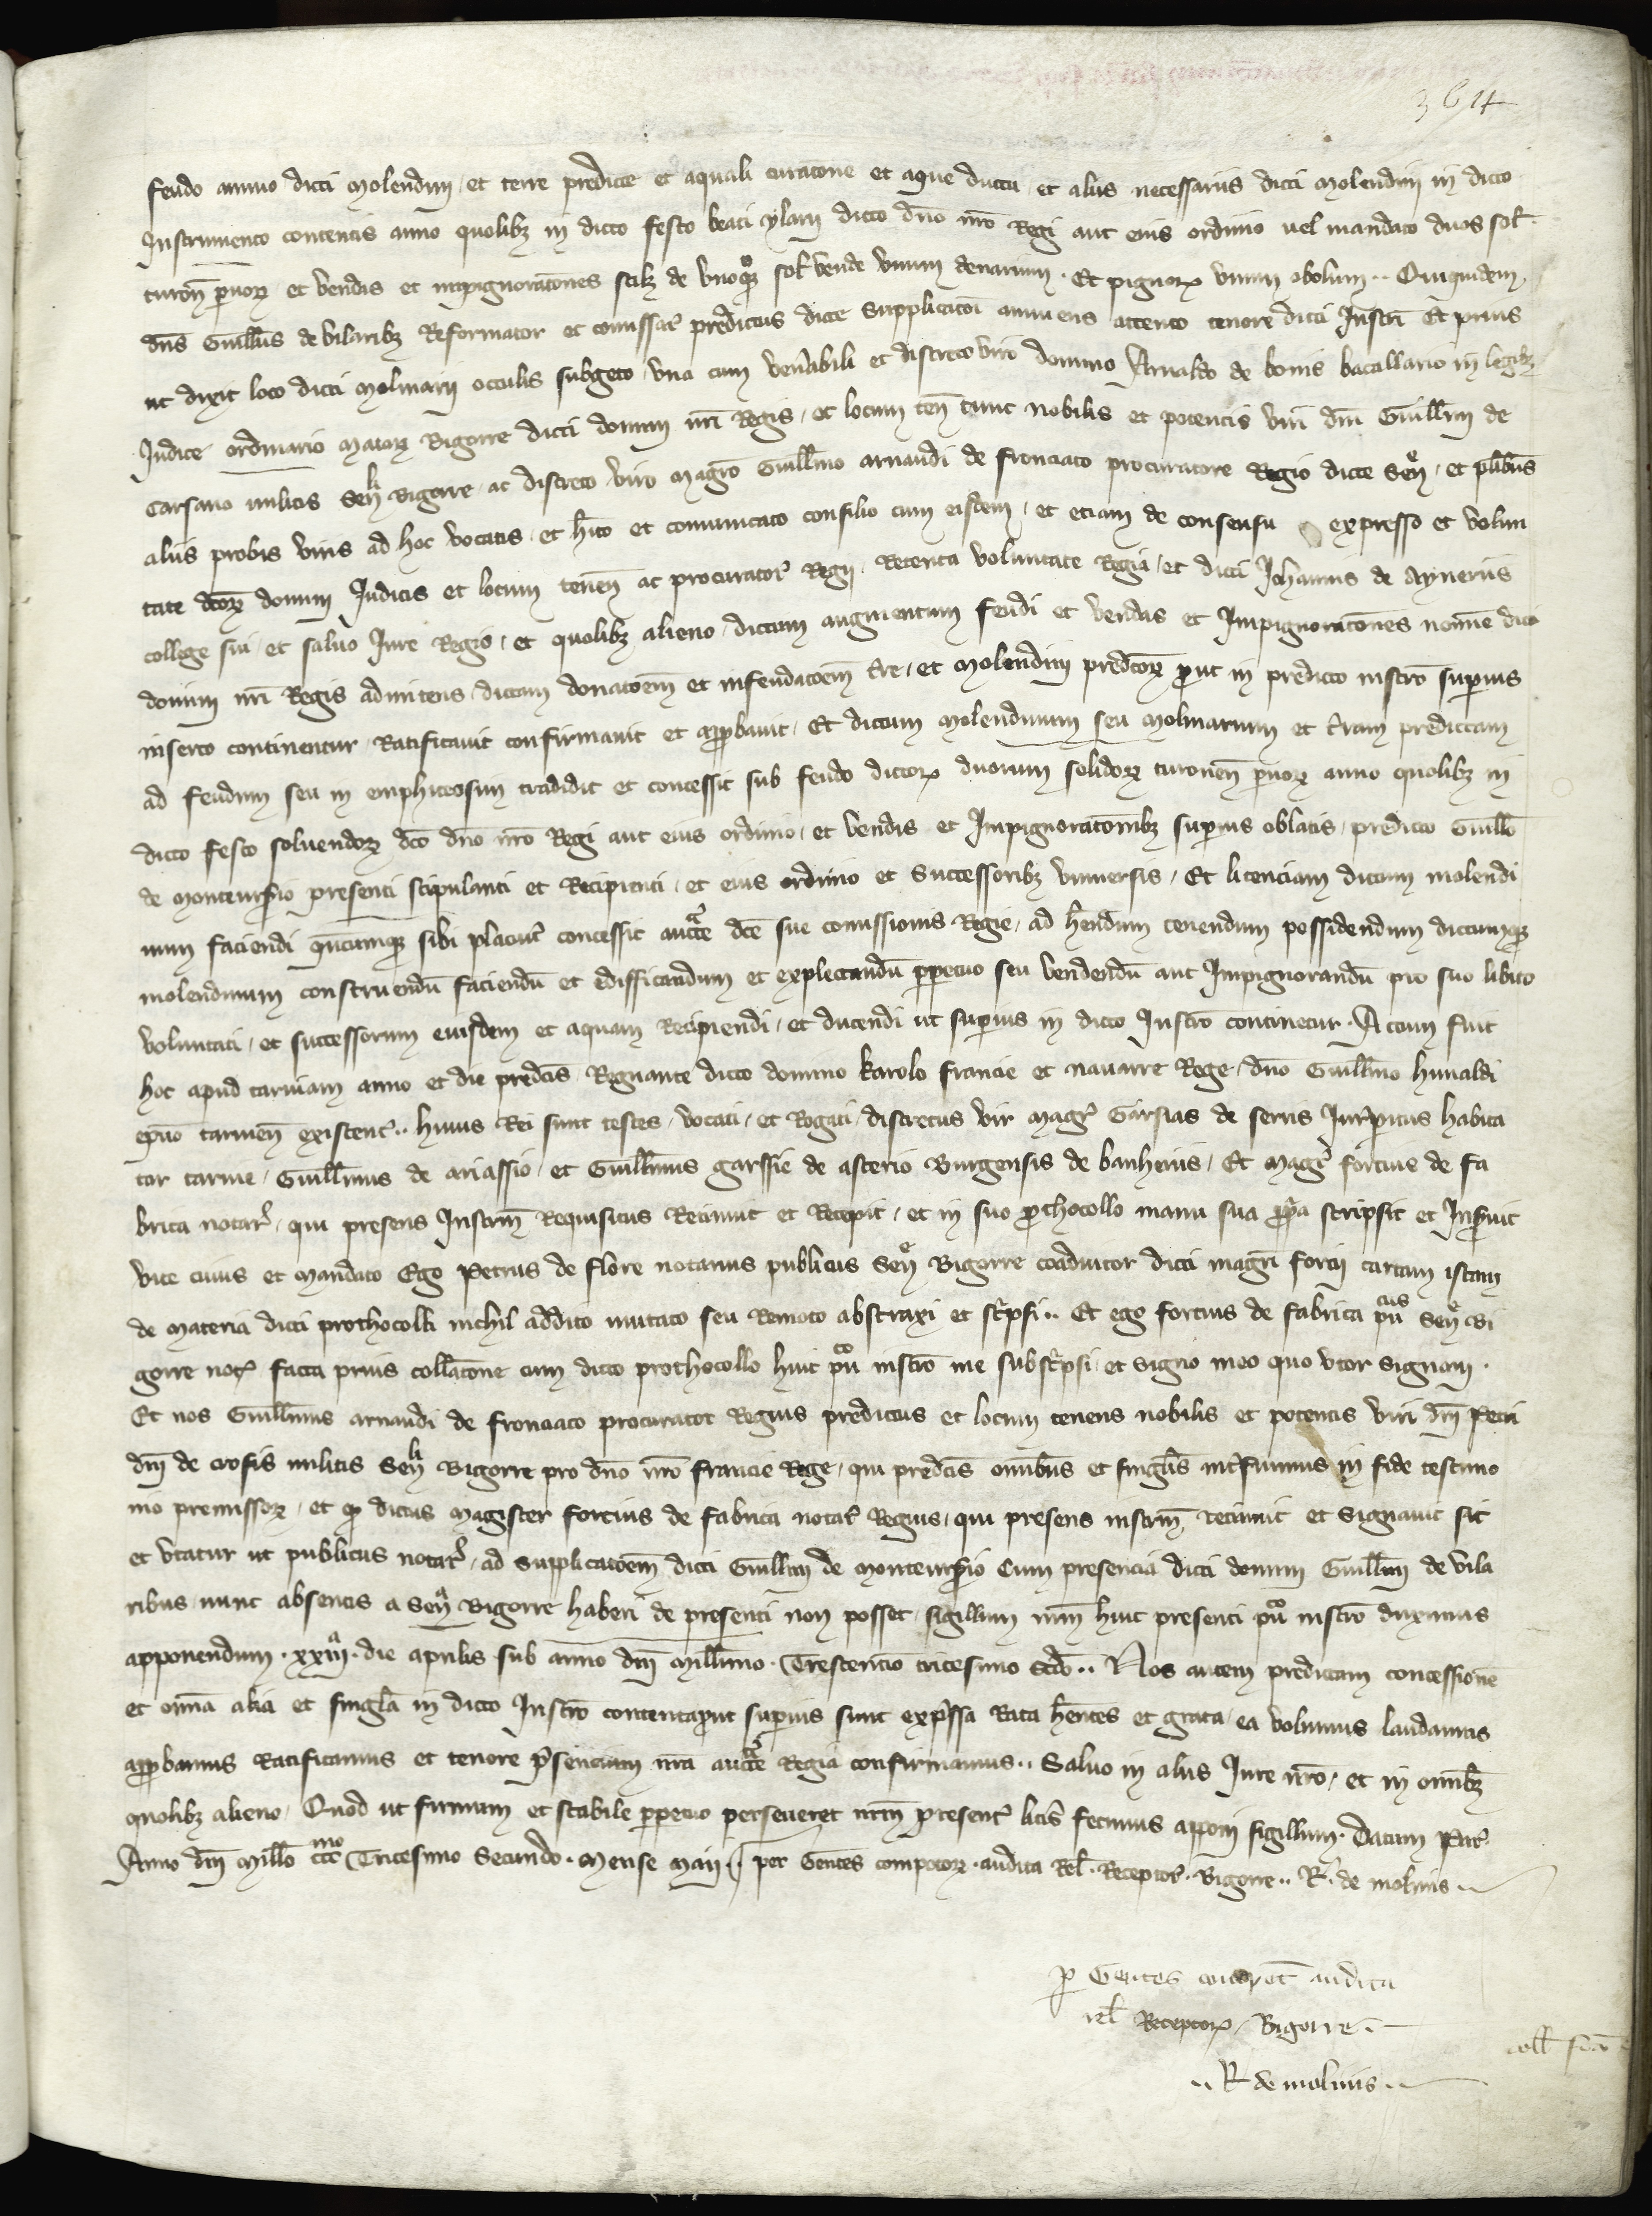 364
feudo annuo dicti Molendini et terre predicte et aquali curatone et aque ductu et aliis necessariis dicti Molendini in dicto
Instrumento contentis anno quolibz in dicto festo beati ylarii dicto dno nro Regi aut eius ordinio uel mandato duos sol
turon pruorz et vendis et inpignoratones scilz de vnoqz sol vende vnum denarium. Et pignorz vnum obolum. Quiquidem
dns Guillms de vilaribz Reformator et comissar predictus dicte supplicatoi annuens attento tenore dicti Instri Et prius
ut dixit loco dicti Molinarii occulis subgeto vna cum venabili et discreto viro domino Arnaldo de bonis bacallario in legibz
Judice ordinario Maiorz Bigorre dicti domini nri Regis et locum ten tunc nobilis et potentis viri dni Guillmi de
Carsano militis Senlli Bigorre ac discreto viro magro Guillmo arnaudi de fronciaco procuratore Regio dicte Sen et plibus
aliis probis viris ad hoc vocatis et hito et comunicato consilio cum eisdem et etiam de consensu expresso et volun
tate dcorz domini Judicis et locum tenen ac procurator Regii Retenta voluntate Regia et dicti Johannis de Aynerus
college sui et saluo Jure Regio et quolibz alieno dictum augmentum feudi et vendas et Impignoratones nomine dicti
domini nri Regis admitens dictam donatoem et infeudatoem tre et Molendini predcorz prout in predicto instro superius
inserto continentur Ratificauit confirmauit et approbauit Et dictum Molendinum seu Molinarium et terram predictam
ad feudum seu in emphiteosim tradidit et concessit sub feudo dictorz duorum solidorz turonen pruorz anno quolibz in
dicto festo soluendorz dco dno nro Regi aut eius ordinio et vendis et Impignoratonibz superius oblatis predicto Guillo
de montenrsio presenti stipulanti et Recipienti et eius ordinio et Successoribz vniuersis Et licenciam dictum molendi
num faciendi quncumqz sibi placuit concessit aucte dce sue comissionis Regie ad hendum tenendum possidendum dictumqz
molendinum construendu faciendu et edifficandum et explectandu perpetuo seu vendendu aut Impignorandu pro suo libito
voluntati et successorum eiusdem et aquam Recipiendi et ducendi ut superius in dicto Instro continetur. Actum fuit
hoc apud taruiam anno et die predcis Regnante dicto domino karolo francie et nauarre Rege dno Guillmo hunaldi
epuo taruien existent. huius Rei sunt testes vocati et Rogati discretus vir magr Garsias de serris Jurispitus habita
tor taruie Guillmus de ariassio et Guillmus garssie de asterio Burgensis de banheriis Et magr forcius de fa
brica notar qui presens Instrm Requisitus Retinuit et Recepit et in suo prothocollo manu sua propria scripsit et Inseruit
vice cuius et Mandato Ego Petrus de flore notarius publicus Sen Bigorre coadiutor dicti magri forcii cartam istam
de Materia dicti prothocolli nichil addito mutato seu Remoto abstraxi et scripsi. Et ego forcius de fabrica pucus Sen Bi
gorre not facta prius collatone cum dicto prothocollo huic puco instro me subscripsi et signo meo quo vtor signaui.
Et nos Guillmus arnaudi de fronciaco procurator Regius predictus et locum tenens nobilis et potentis viri dni Petri
dni de crosis militis Senlli Bigorre pro dno nro francie Rege qui predcis omibus et singulis interfuimus in fide testimo
nio premissorz et qz dictus Magister forcius de fabrica notar Regius qui presens instrm retinuit et signauit sit
et vtatur ut publicus notar ad supplicatoem dicti Guillmi de montenrsio Cum presencia dicti domini Guillmi de vila
ribus nunc absentis a Sen Bigorre haberi de presenti non posset sigillum nrm huic presenti puco instro duximus
apponendum. xxiiia. die aprilis sub anno dni Millmo. Trescentio tricesimo scdo. Nos autem predictam concessione
et omia alia et singla in dicto Instro contenta prout superius sunt expressa Rata hentes et grata ea volumus laudamus
approbamus Ratificamus et tenore presencium nra aucte Regia confirmamus. Saluo in aliis Jure nro et in omibz
quolibz alieno Quod ut firmum et stabile perpetuo perseueret nrm present litis fecimus apponi sigillum. Datum Par
Anno dni Millo cccmo Tricesimo Secundo. Mense Maii. per Gentes compotorz audita Rel. Receptor. Bigorre. R. de molinis
p Gentes compot audita
rel Receptorz Bigorre
R de molinis
coll fca